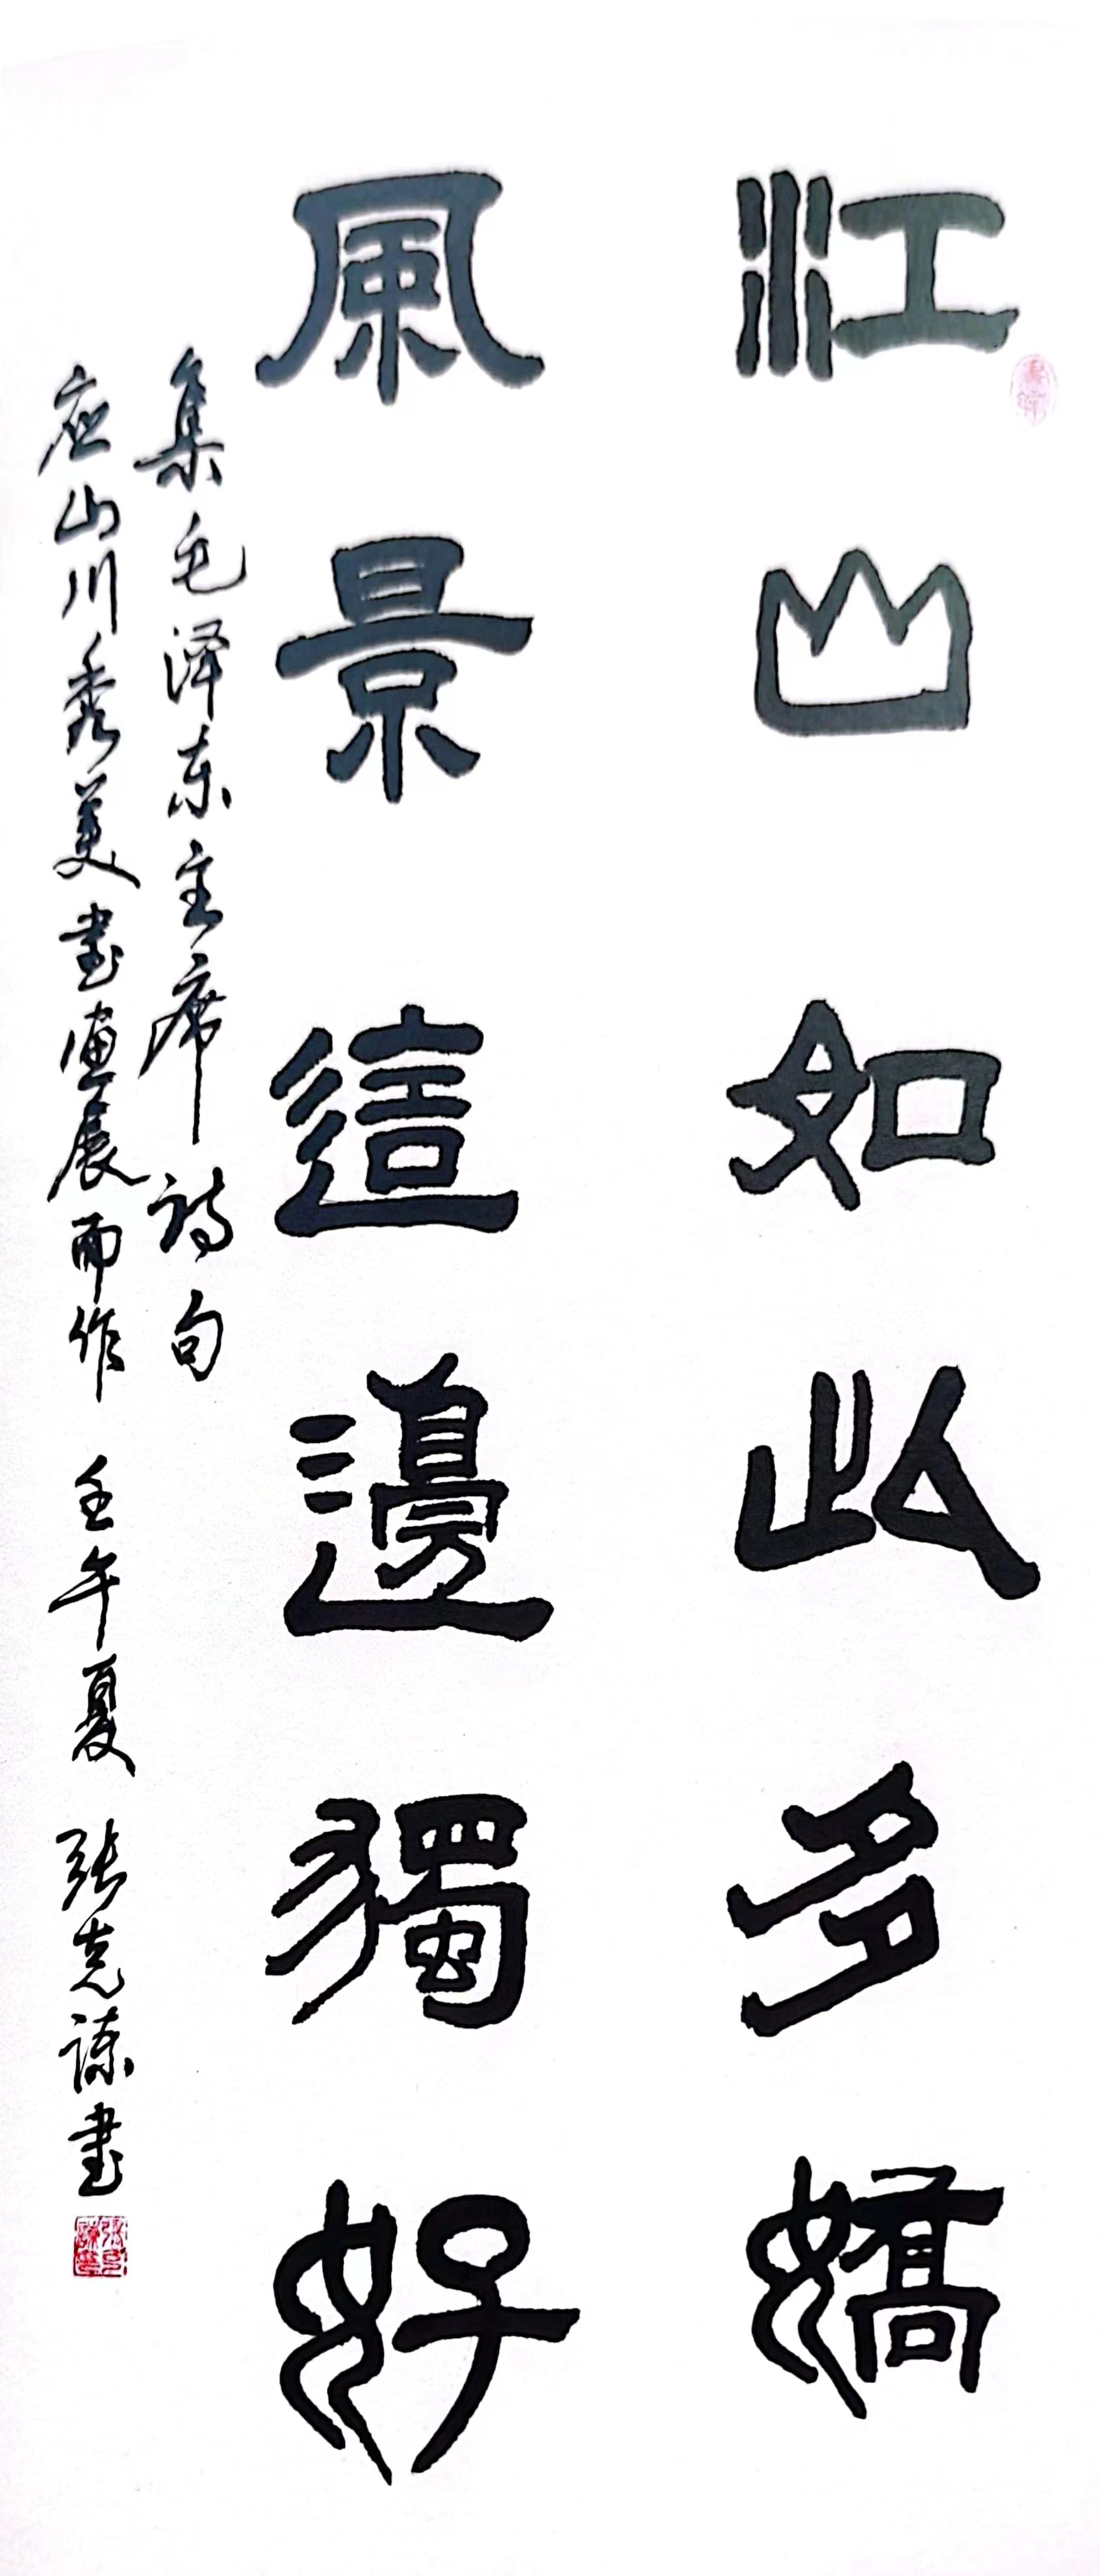 江山如此多嬌
風景這邊獨好
集毛泽东主席詩句
应山川秀美書畫展而作 壬午夏 张克谏書